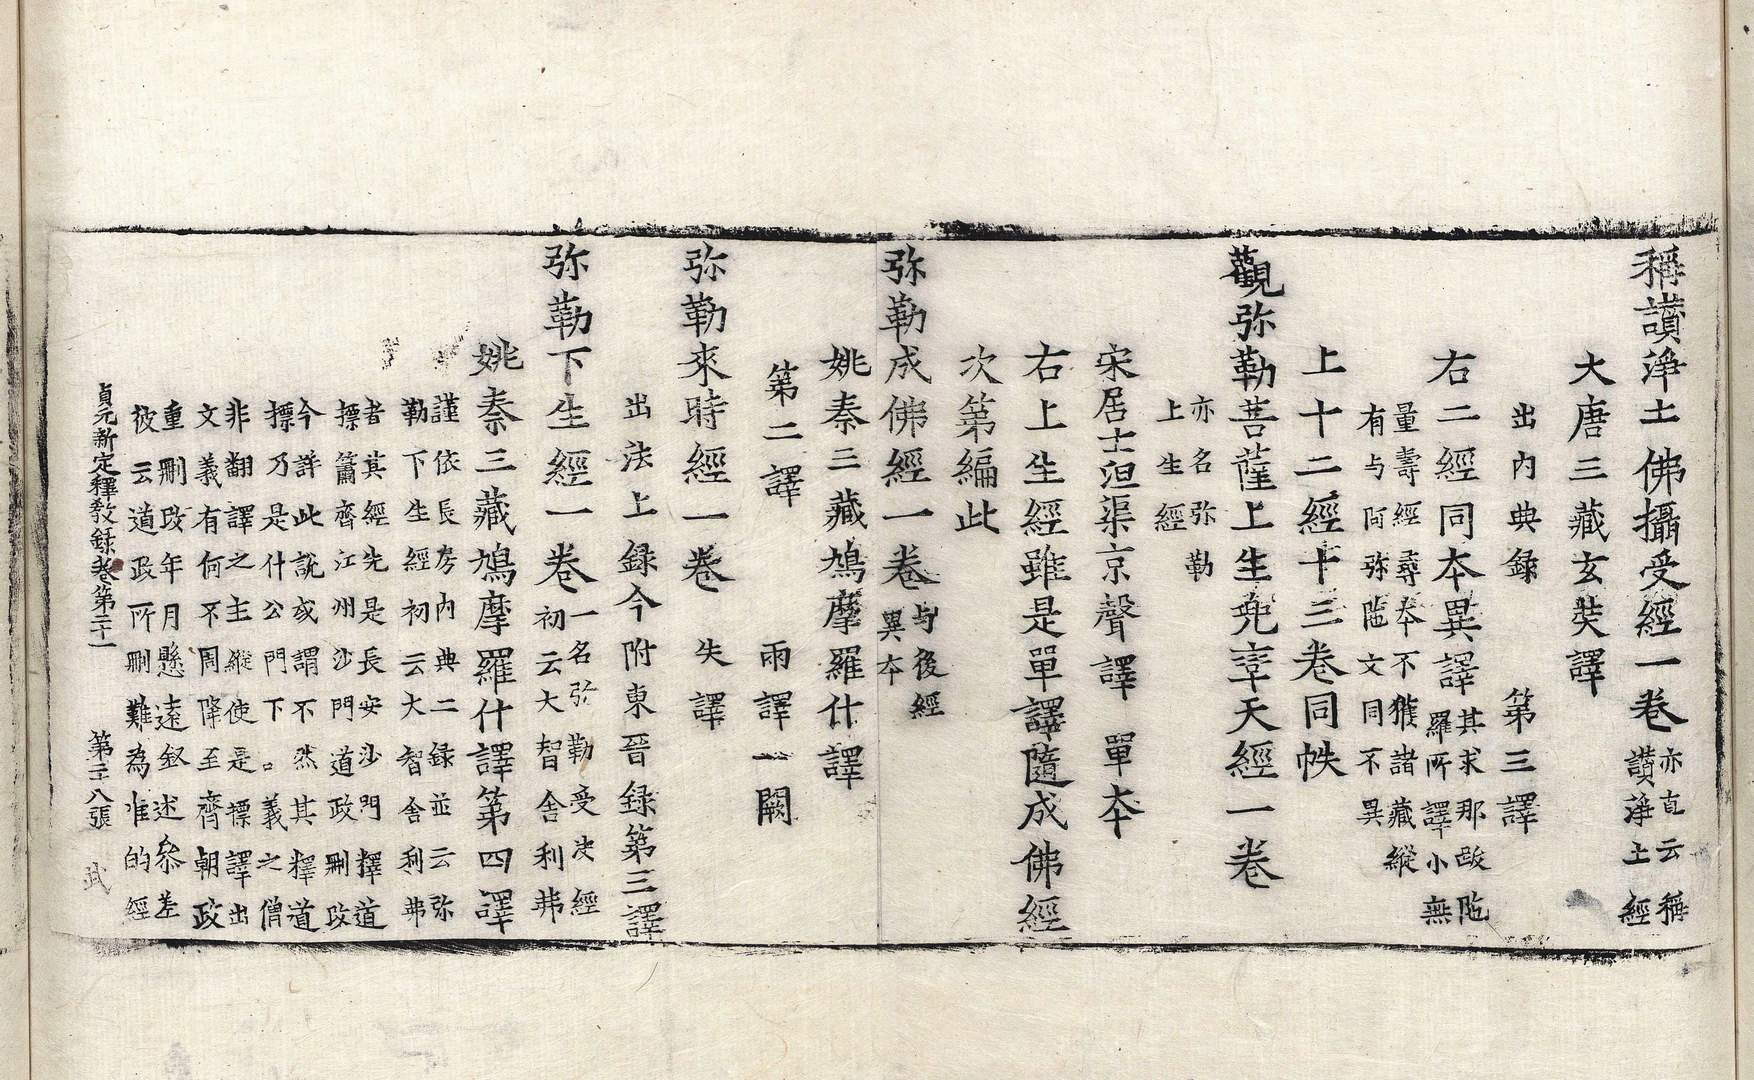 稱讃淨土佛攝受經一卷亦直云稱
讃淨土經
大唐三藏玄奘譯
出內典録　第三譯
右二經同本異譯其求那跋陁
羅所譯小無
量壽經尋本不獲諸藏縱
有与阿弥陁文同不異
上十二經十三卷同帙
觀弥勒菩薩上生兜率天經一卷
亦名弥勒
上生經
宋居士沮渠京聲譯　單本
右上生經雖是單譯隨成佛經
次第編此
弥勒成佛經一卷与後經
異本
姚秦三藏鳩摩羅什譯
第二譯　兩譯一闕
弥勒來時經一卷　失譯
出法上録今附東晉録第三譯
弥勒下生經一卷一名弥勒受决經
初云大智舍利弗
姚秦三藏鳩摩羅什譯第四譯
謹依長房內典二録並云弥
勒下生經初云大智舍利弗
者其經先是長安沙門釋道
摽簫齊江州沙門道政刪改
今詳此說或謂不然其釋道
摽乃是什公門下義之僧
非翻譯之主縱使是摽譯出
文義有何不周降至齊朝政
重刪改年月懸遠叙述叅差
彼云道政所刪難為惟的經
貞元新定釋教録卷第二十一　第二十八張　武